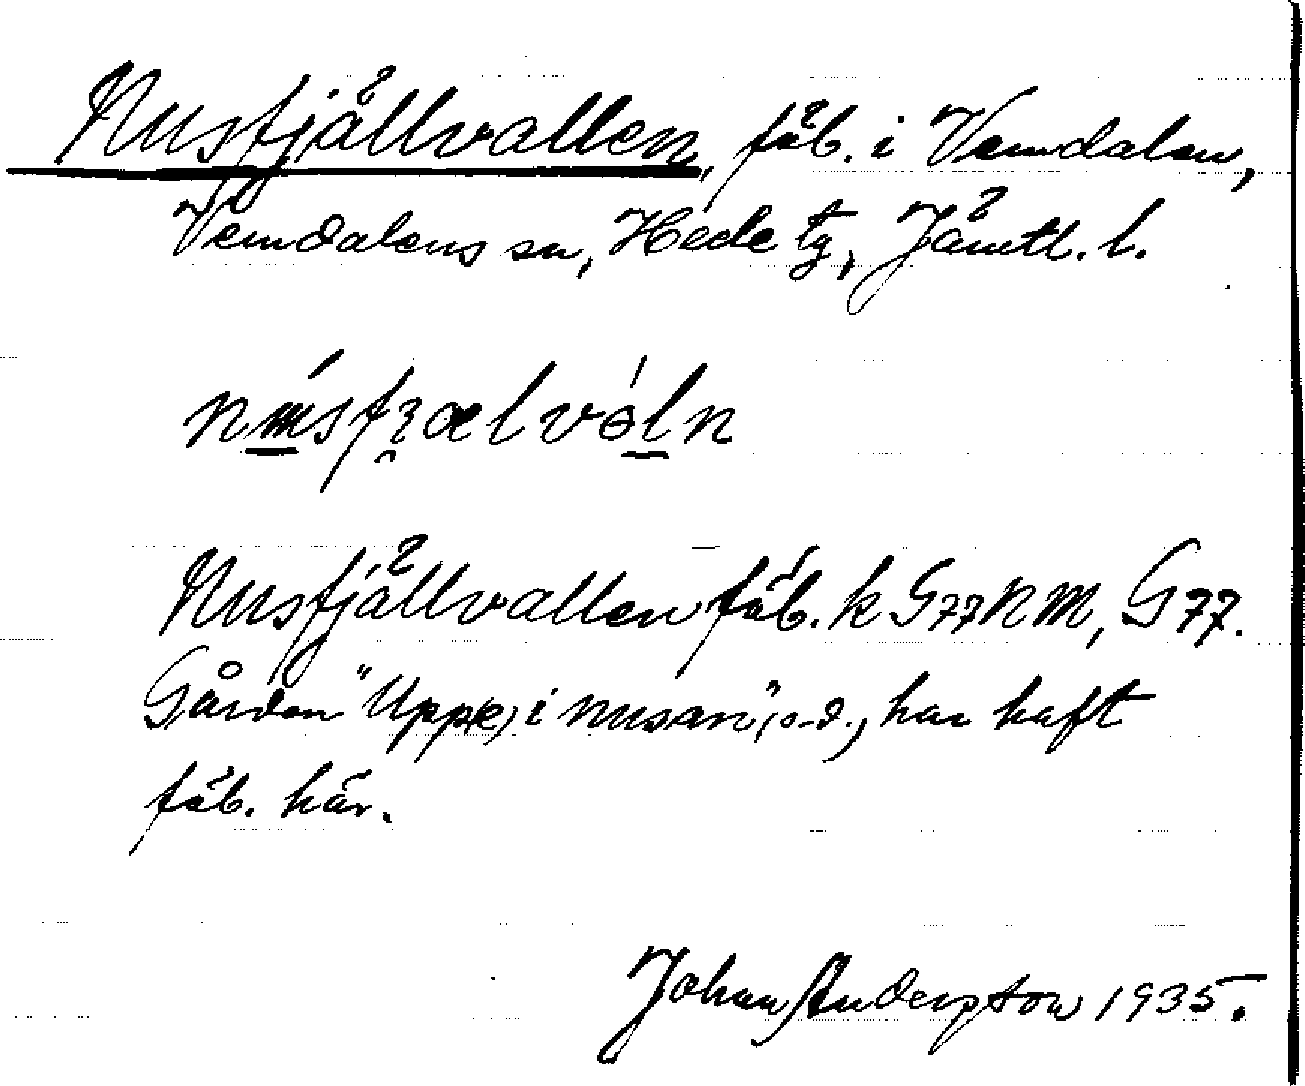 Nusfjällvallen, fäb. i Vemdalen,
Vemdalens sn, Hede tg, Jämtl. l.
Nusfjällvallen fäb. k G77NM, G77.
Gården "Upp(e) i nusan", o-d., har haft
fäb. här.
Johan Anderson 1935.